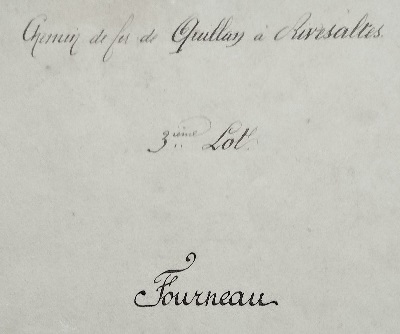 Chemin de fer de Quillan à Rivesaltes.
3ième Lot.
Fourneau